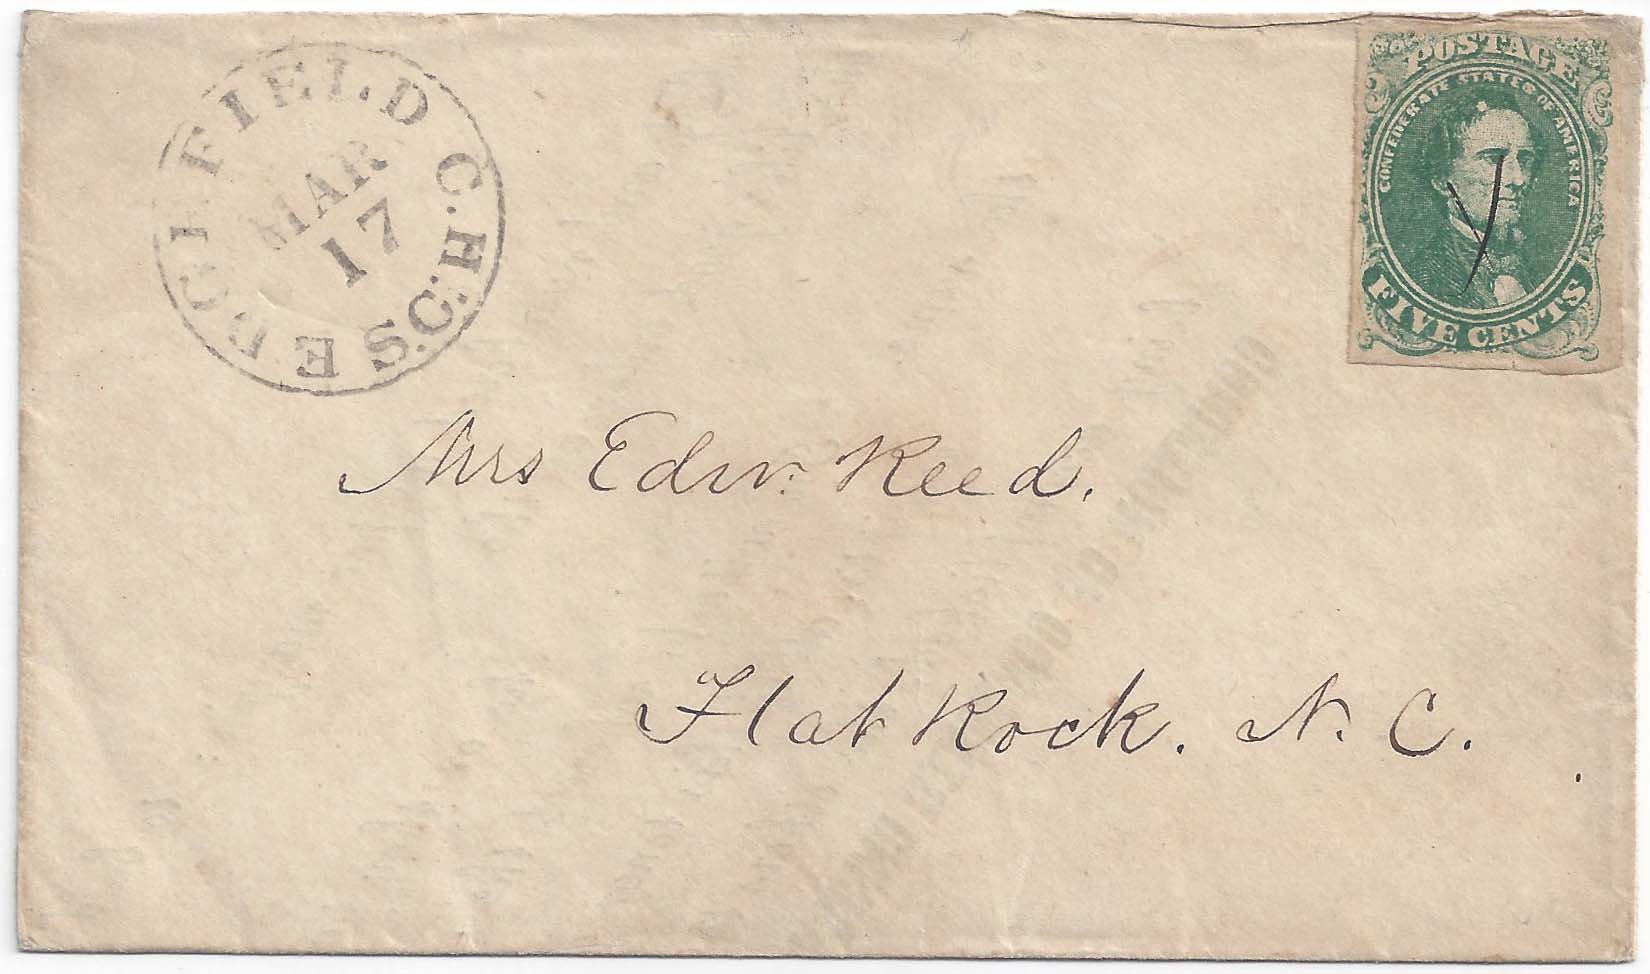 EDGEFIELD C.H. S.C.
MAR
17
POSTAGE
CONFEDERATE STATES OF AMERICA
FIVE CENTS
Mrs Edw. Reed.
Flat Rock. N. C.